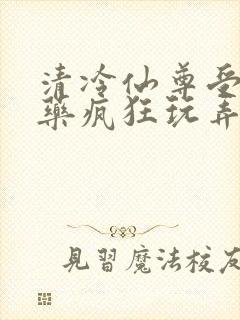 清冷仙尊受
藥瘋狂玩弄
見習魔法校友